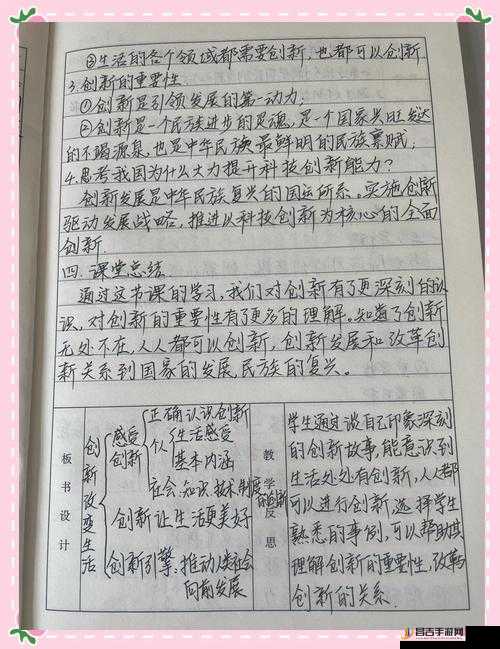 ③生活的各个领域都需要创新,也都可以创新
3.创新的重要性
①创新是引领发展的第一动力;
②创新是一个民族进步的灵魂,是一个国家兴旺发达
的不竭源泉,也是中华民族最鲜明的民族禀赋;
4.思考我国为什么大力提升科技创新能力?
创新发展是中华民族复兴的国运所系。实施创新
驱动发展战略,推进以科技创新为核心的全面
创新.
四.课堂总结.
通过这节课的学习,我们对创新有了更深刻的认
识,对创新的重要性有了更多的理解。知道了创新
无处不在,人人都可以创新,创新发展和改革创
新关系到国家的发展,民族的复兴。
板书设计
创新改变生活
感受
创新
正确认识创新
个人生活感受
基本内涵
社会:知识 技术 制度
创新让生活更美好
创新引擎:推动人类社会
向前发展
教学反思
学生通过谈自己印象深刻
的创新故事,能意识到
生活处处有创新,人人都
可以进行创新,选择学生
熟悉的事例,可以帮助其
理解创新的重要性,改革与
创新的关系.
昌吉手游网